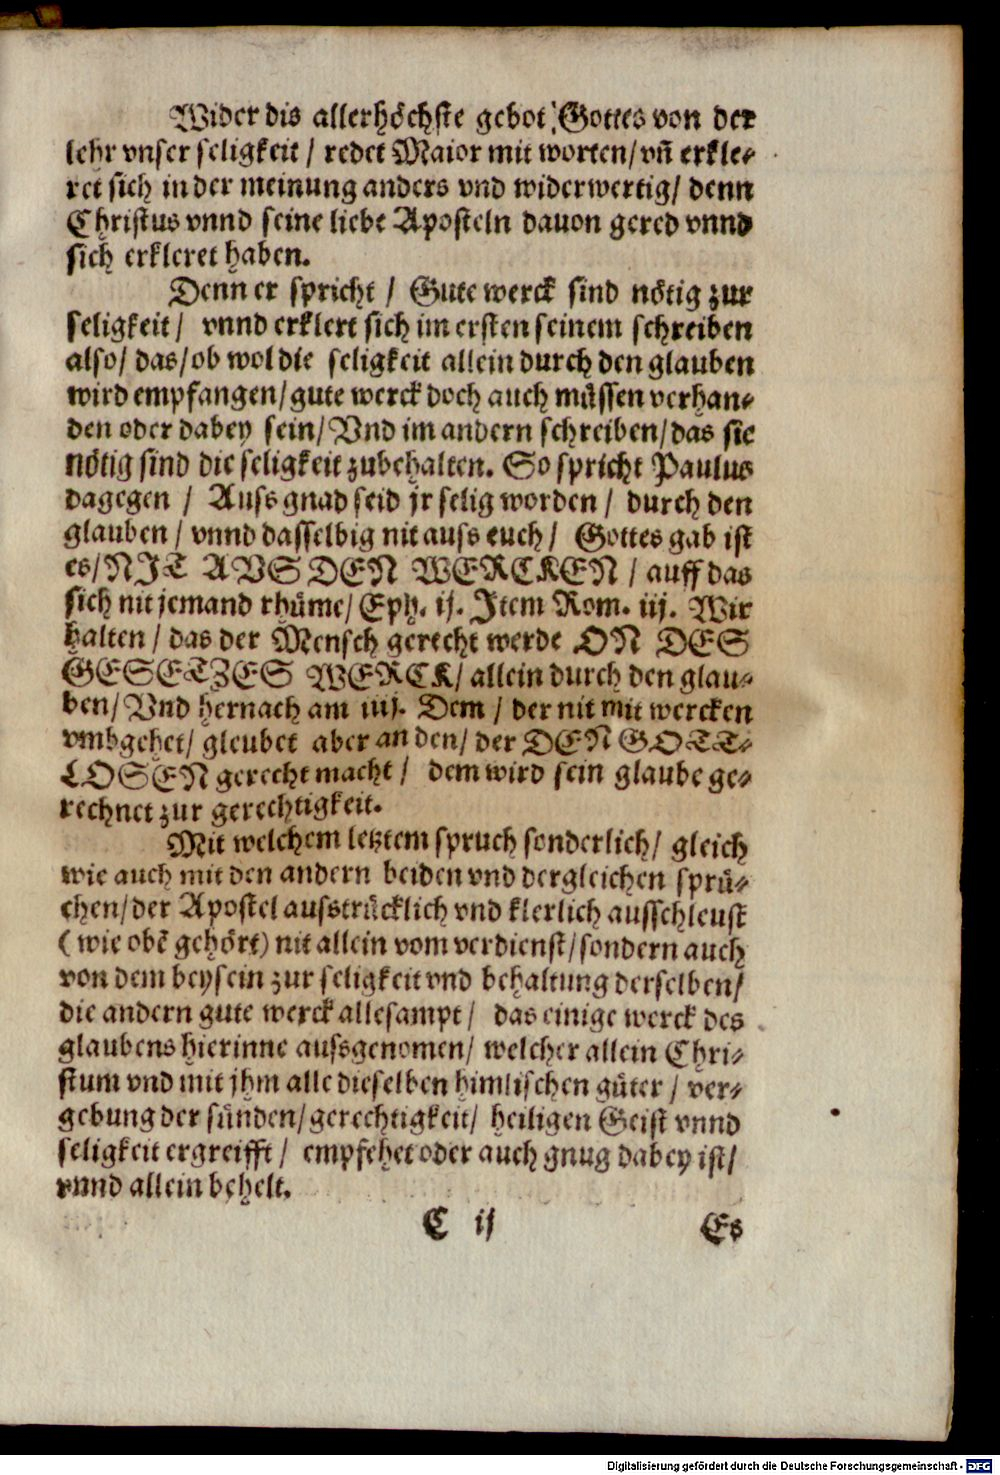 Wider dis allerhöchste gebot Gottes von der
lehr vnser seligkeit / redet Maior mit worten / vn̄ erkle⸗
ret sich in der meinung anders vnd widerwertig / denn
Christus vnnd seine liebe Aposteln dauon gered vnnd
sich erkleret haben.
Denn er spricht / Gute werck sind nötig zur
seligkeit / vnnd erklert sich im ersten seinem schreiben
also / das / ob wol die seligkeit allein durch den glauben
wird empfangen / gute werck doch auch müssen verhan⸗
den oder dabey sein / Vnd im andern schreiben / das sie
nötig sind die seligkeit zubehalten. So spricht Paulus
dagegen / Auss gnad seid jr selig worden / durch den
glauben / vnnd dasselbig nit auss euch / Gottes gab ist
es / NIT AVS DEN WERCKEN / auff das
sich nit jemand rhüme / Eph. ij. Item Rom. iij. Wir
halten / das der Mensch gerecht werde ON DES
GESETZES WERCK / allein durch den glau⸗
ben / Vnd hernach am iiij. Dem / der nit mit wercken
vmbgehet / gleubet aber an den / der DEN GOTT⸗
LOSEN gerecht macht / dem wird sein glaube ge⸗
rechnet zur gerechtigkeit.
Mit welchem letztem spruch sonderlich / gleich
wie auch mit den andern beiden vnd dergleichen sprü⸗
chen / der Apostel ausstrücklich vnd klerlich ausschleust
( wie obē gehört) nit allein vom verdienst / sondern auch
von dem beysein zur seligkeit vnd behaltung derselben /
die andern gute werck allesampt / das einige werck des
glaubens hierinne aussgenomen / welcher allein Chri⸗
stum vnd mit jhm alle dieselben himlischen güter / ver⸗
gebung der sünden / gerechtigkeit / heiligen Geist vnnd
seligkeit ergreifft / empfehet oder auch gnug dabey ist /
vnnd allein behelt.
C ij Es
Digitalisierung gefördert durch die Deutsche Forschungsgemeinschaft - DFG